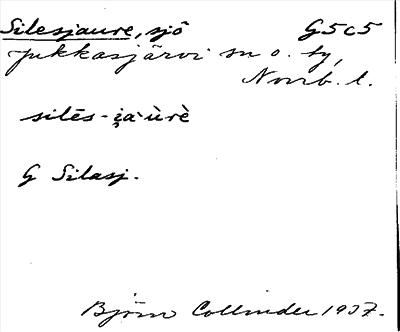 Silesjaure, sjö G5c5
Jukkasjärvi sn o. ty,
Norrb. l.
silēs-i̯a'ùrè
G Silasj.
Björn Collinder 1937.